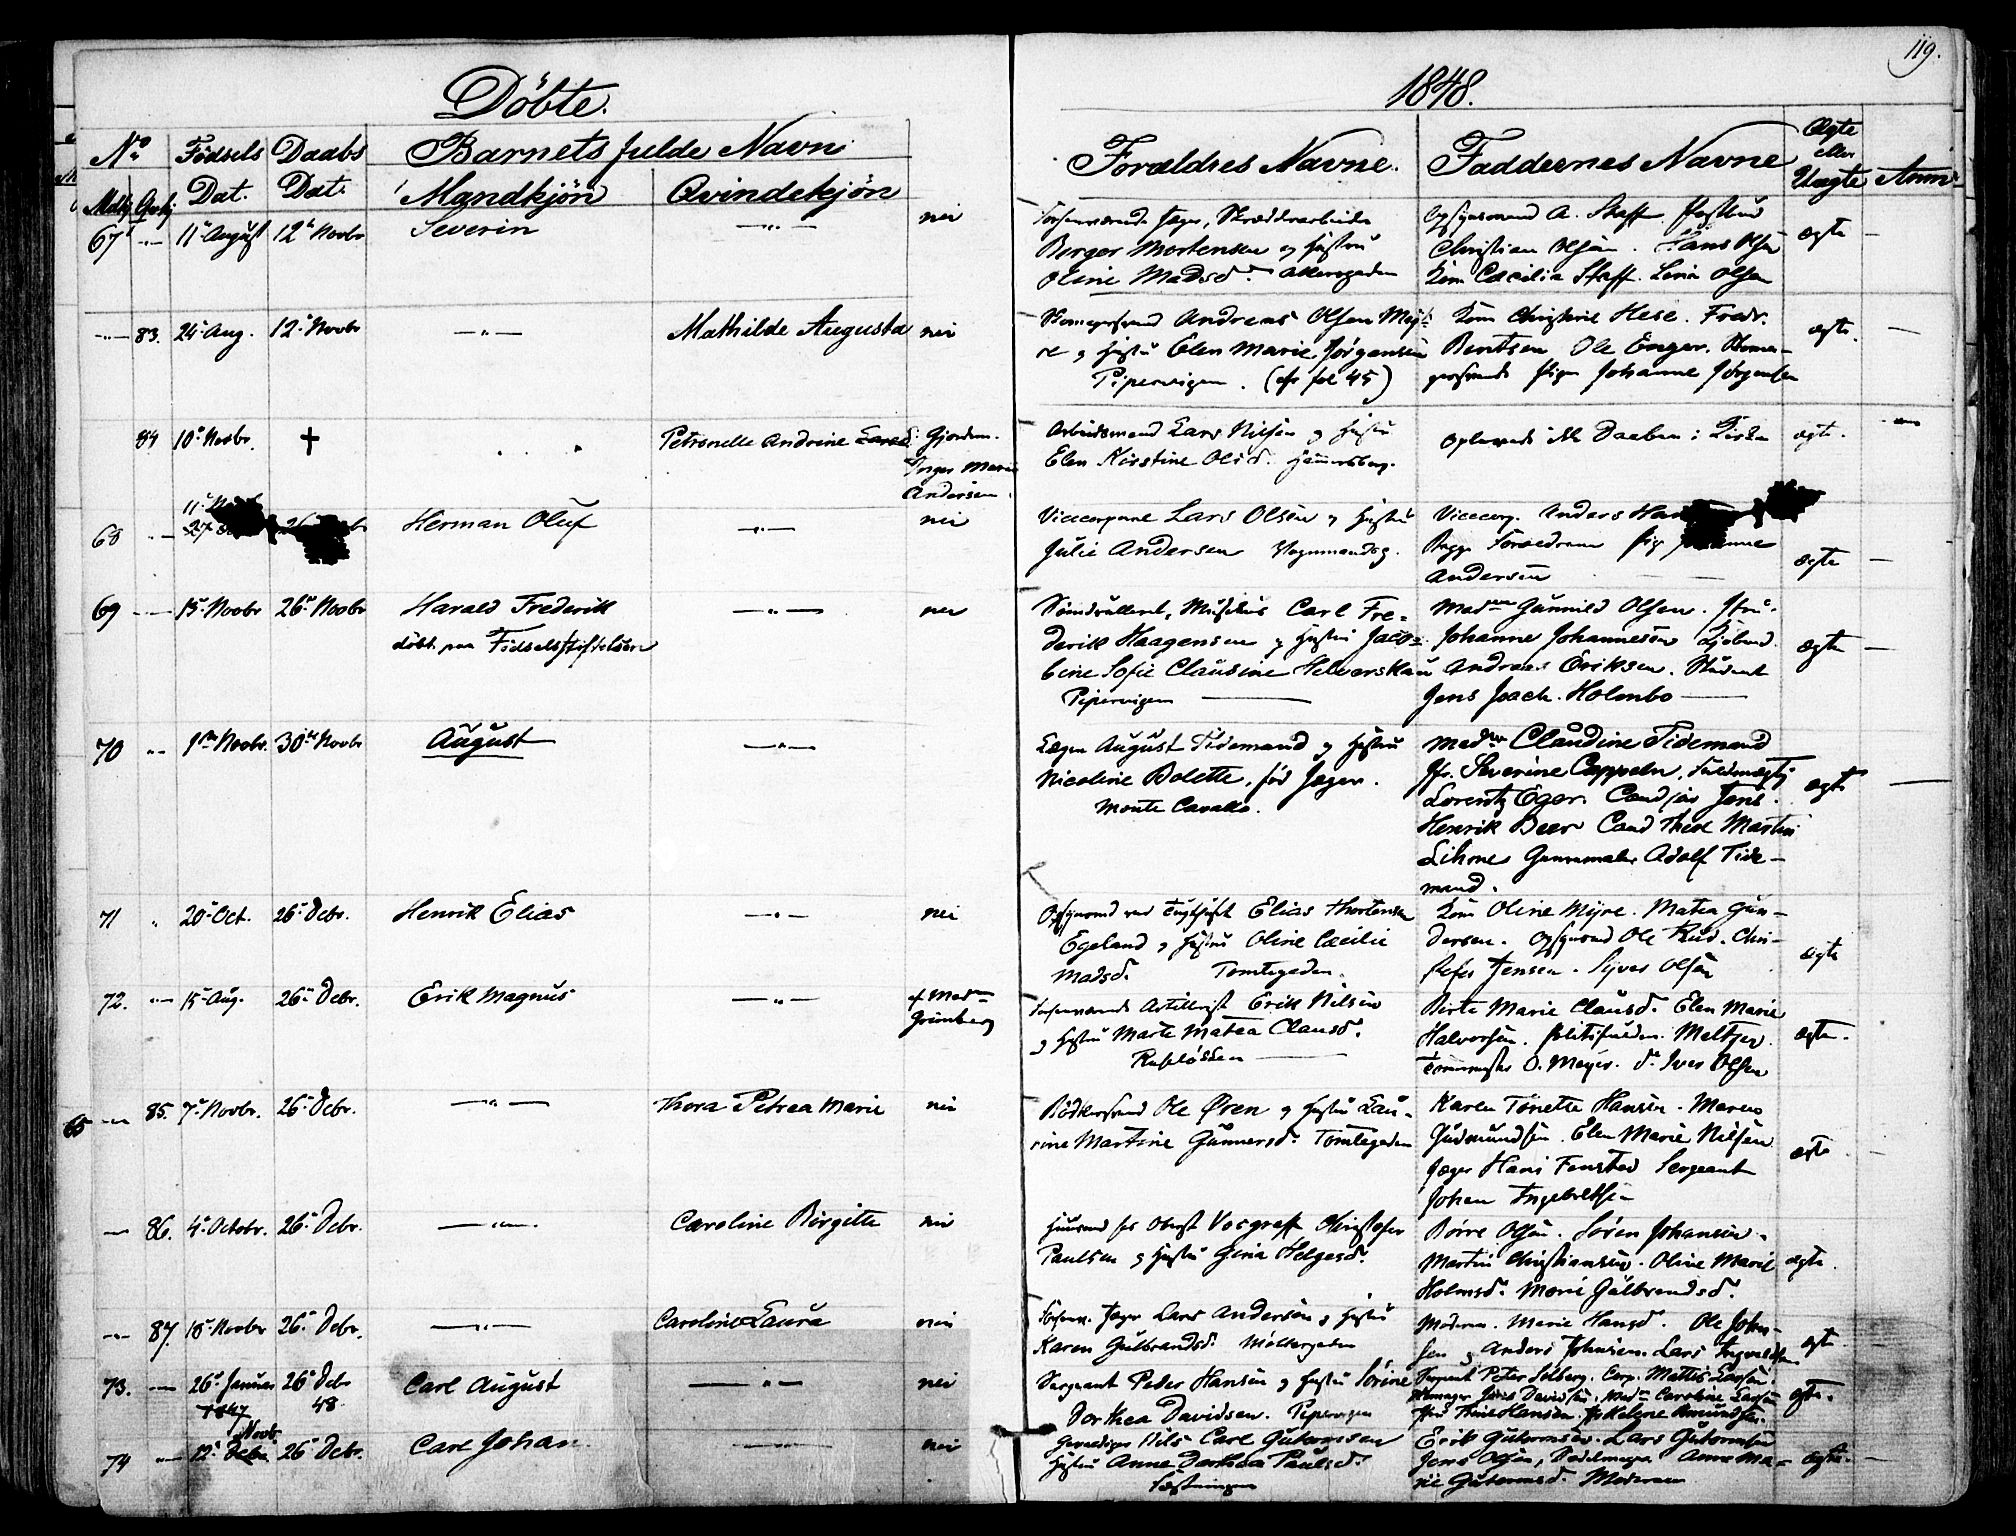 119.
Döbte.
1848.
No Fødsels Daabs Barnets fulde Navn
Mdkj Qvkj Dat. Dat. Mandkjøn Qvindekjøn
Forældres Navne. Faddernes Navne Ægte eller Uægte Anm.
67 11 August 12 Novbr Severin nei
Jæger, Skrædderarbeider
Berger Mortensen og Hustru
Oline Madsd. Akersgaden
Opsynsmand A. Staff
Christian Olsen. Hans Olsen
Kone Cæcilia Staff. Olsen
ægte
83. 24 Aug. 12 Novbr Mathilde Augusta nei
Skomagersvend Andreas Olsen Myh-
re og Hustru Elen Marie Jørgensen
Pipervigen. (cfr fol 45)
Kone Christine Hese. Fredr.
Berntsen Ole Enger. Skoma-
gersvend Pige Johanne Jørgensen
ægte.
84 10 Novbr. † Petronelle Andrine Larsd. Gjordem.
Inger Marie
Andersen.
Arbeidsmand Lars Nilsen og Hustru
Elen Kirstine Olsd. Hammersborg.
oplevede ikke Daaben i Kirken
ægte.
11 Novb
68 27 26 Herman Oluf nei
Vicecorporal Lars Olsen og Hustru
Julie Andersen Vognmandsg.
Vicecorp. Anders
Pige
Andersen
ægte
69 15 Novbr 26 Novbr Harald Frederik nei
døbt paa Fødselsstiftelsen
Musikus Carl Fre-
derik Haagensen og Hustru Jaco-
bine Sofie Claudine Helverskau
Pipervigen
Madme Gunnild Olsen.
Johanne Johannesen
Andreas Eriksen. Student
Jens Joach. Holmbo
ægte
70 9 Novbr. 30 Novbr August
August Tidemand og Hustru
Nicoline Bolette, fød Jæger.
Monte Cavallo.
Madme Claudine Tidemand
Jfr. Severine Cappelen, Fuldmægtig
Lorentz Eger. Cand jur Jens
Henrik Beer Cand theol Martin
Genremaler Adolf Tide-
mand.
ægte
71 20 Oct. 26 Debr. Henrik Elias nei
Opsynsmd ved Tugthuset Elias Thortensen
Egeland og Hustru Oline Cæcilie
Madsd. Tomtegaden.
Kone Oline Myre. Matea Gun-
dersen. Opsynsmd Ole Rud. Chri-
stofer Jensen. Syver Olsen
ægte
72. 15 Aug. 26 Debr. Erik Magnus af Madme
Grünberg
Forhenværende Artillerist Erik Nilsen
og Hustru Marte Matea Clausd.
Ruseløkken
Birte Marie Clausd. Elen Marie
Halvorsen. Politifuldm. Meltzer.
Tømmermster O. Meyer. do Iver Olsen
ægte.
85. 7 Novbr. 26 Debr. Thora Petrea Marie nei
Bødkersvend Ole Øren og Hustru Lau-
rine Martine Gunnersd. Tomtegaden
Karen Tonette Hansen. Maren
Gudmundsen. Elen Marie Nilsen
Jæger Hans Fenstad Sergeant
Johan Ingebretsen
ægte
86. 4 Octobr. 26 Debr. Caroline Birgitte nei
Huusmd for Oberst Vosgraff Christofer
Paulsen og Hustru Gina Helgesd.
Børre Olsen. Søren Johansen.
Martin Christiansen. Oline Marie
Holmsd. Marie Gulbrandsd.
ægte.
87. 18 Novbr 26 Debr. Caroline Laura nei
Forhenv. Jæger Lars Andersen og Hustru
Karen Gulbrandsd. Møllergaden
Moderen. Marie Hansd. Ole John-
sen og Anders Johnsen. Lars Ingvaldsen
ægte
73. 26 Januar 26 Debr Carl August nei
1847 48
Sergeant Peder Hansen og Hustru Sørine
Dorthea Davidsen. Pipervigen
Sergeant Peter Solberg. Corp. Mathis Larsen.
Skomager Jens Davidsen, Madme Caroline Larsen
Thrine Hansen. Amundsen
ægte.
Novb
74 12 Debr 26 Debr. Carl Johan nei
Gevorbigen Nils Carl Gutormsen
Hustru Anne Dorthea Paulsd.
Fæstningen
Erik Gutormsen. Lars Gutormsen
Jens Olsen, Sadelmager Anne Ma-
rie Gutormsd. Moderen
ægte.